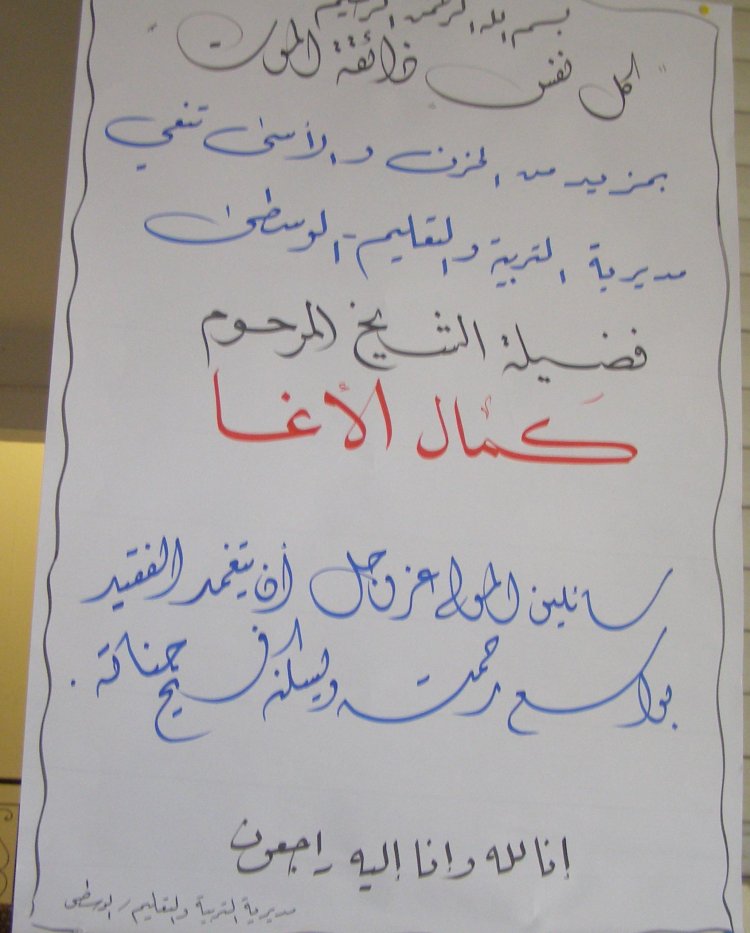 بسم الله الرحمن الرحيم
"كل نفس ذائقة الموت"
بمزيد من الحزن والأسى تنعي
مديرية التربية والتعليم - الوسطى
فضيلة الشيخ المرحوم
كمال الأغا
سائلين المولى عز وجل أن يتغمد الفقيد
بواسع رحمته ويسكنه فسيح جناته.
إنا لله وإنا إليه راجعون
مديرية التربية والتعليم / الوسطى